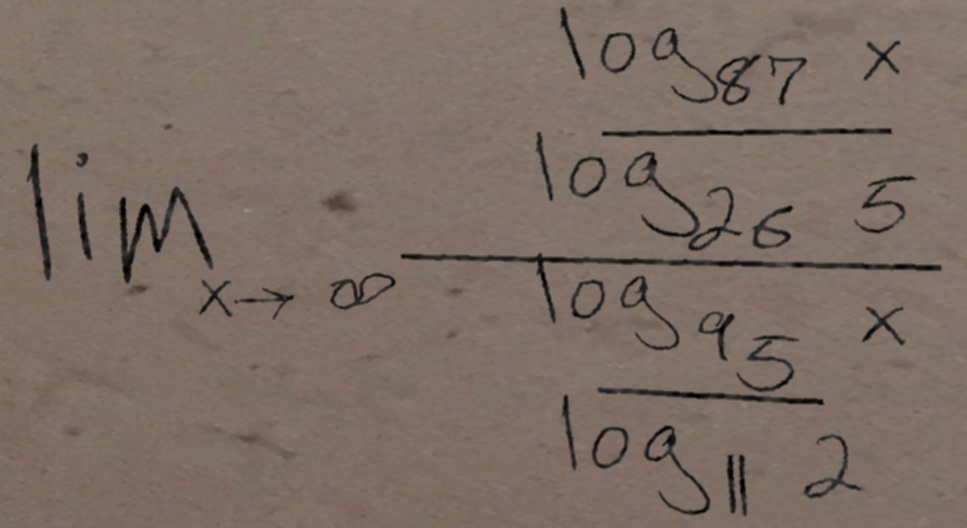 \lim_{x \to \infty} \frac{\frac{\log_{87} x}{\log_{26} 5}}{\frac{\log_{95} x}{\log_{11} 2}}